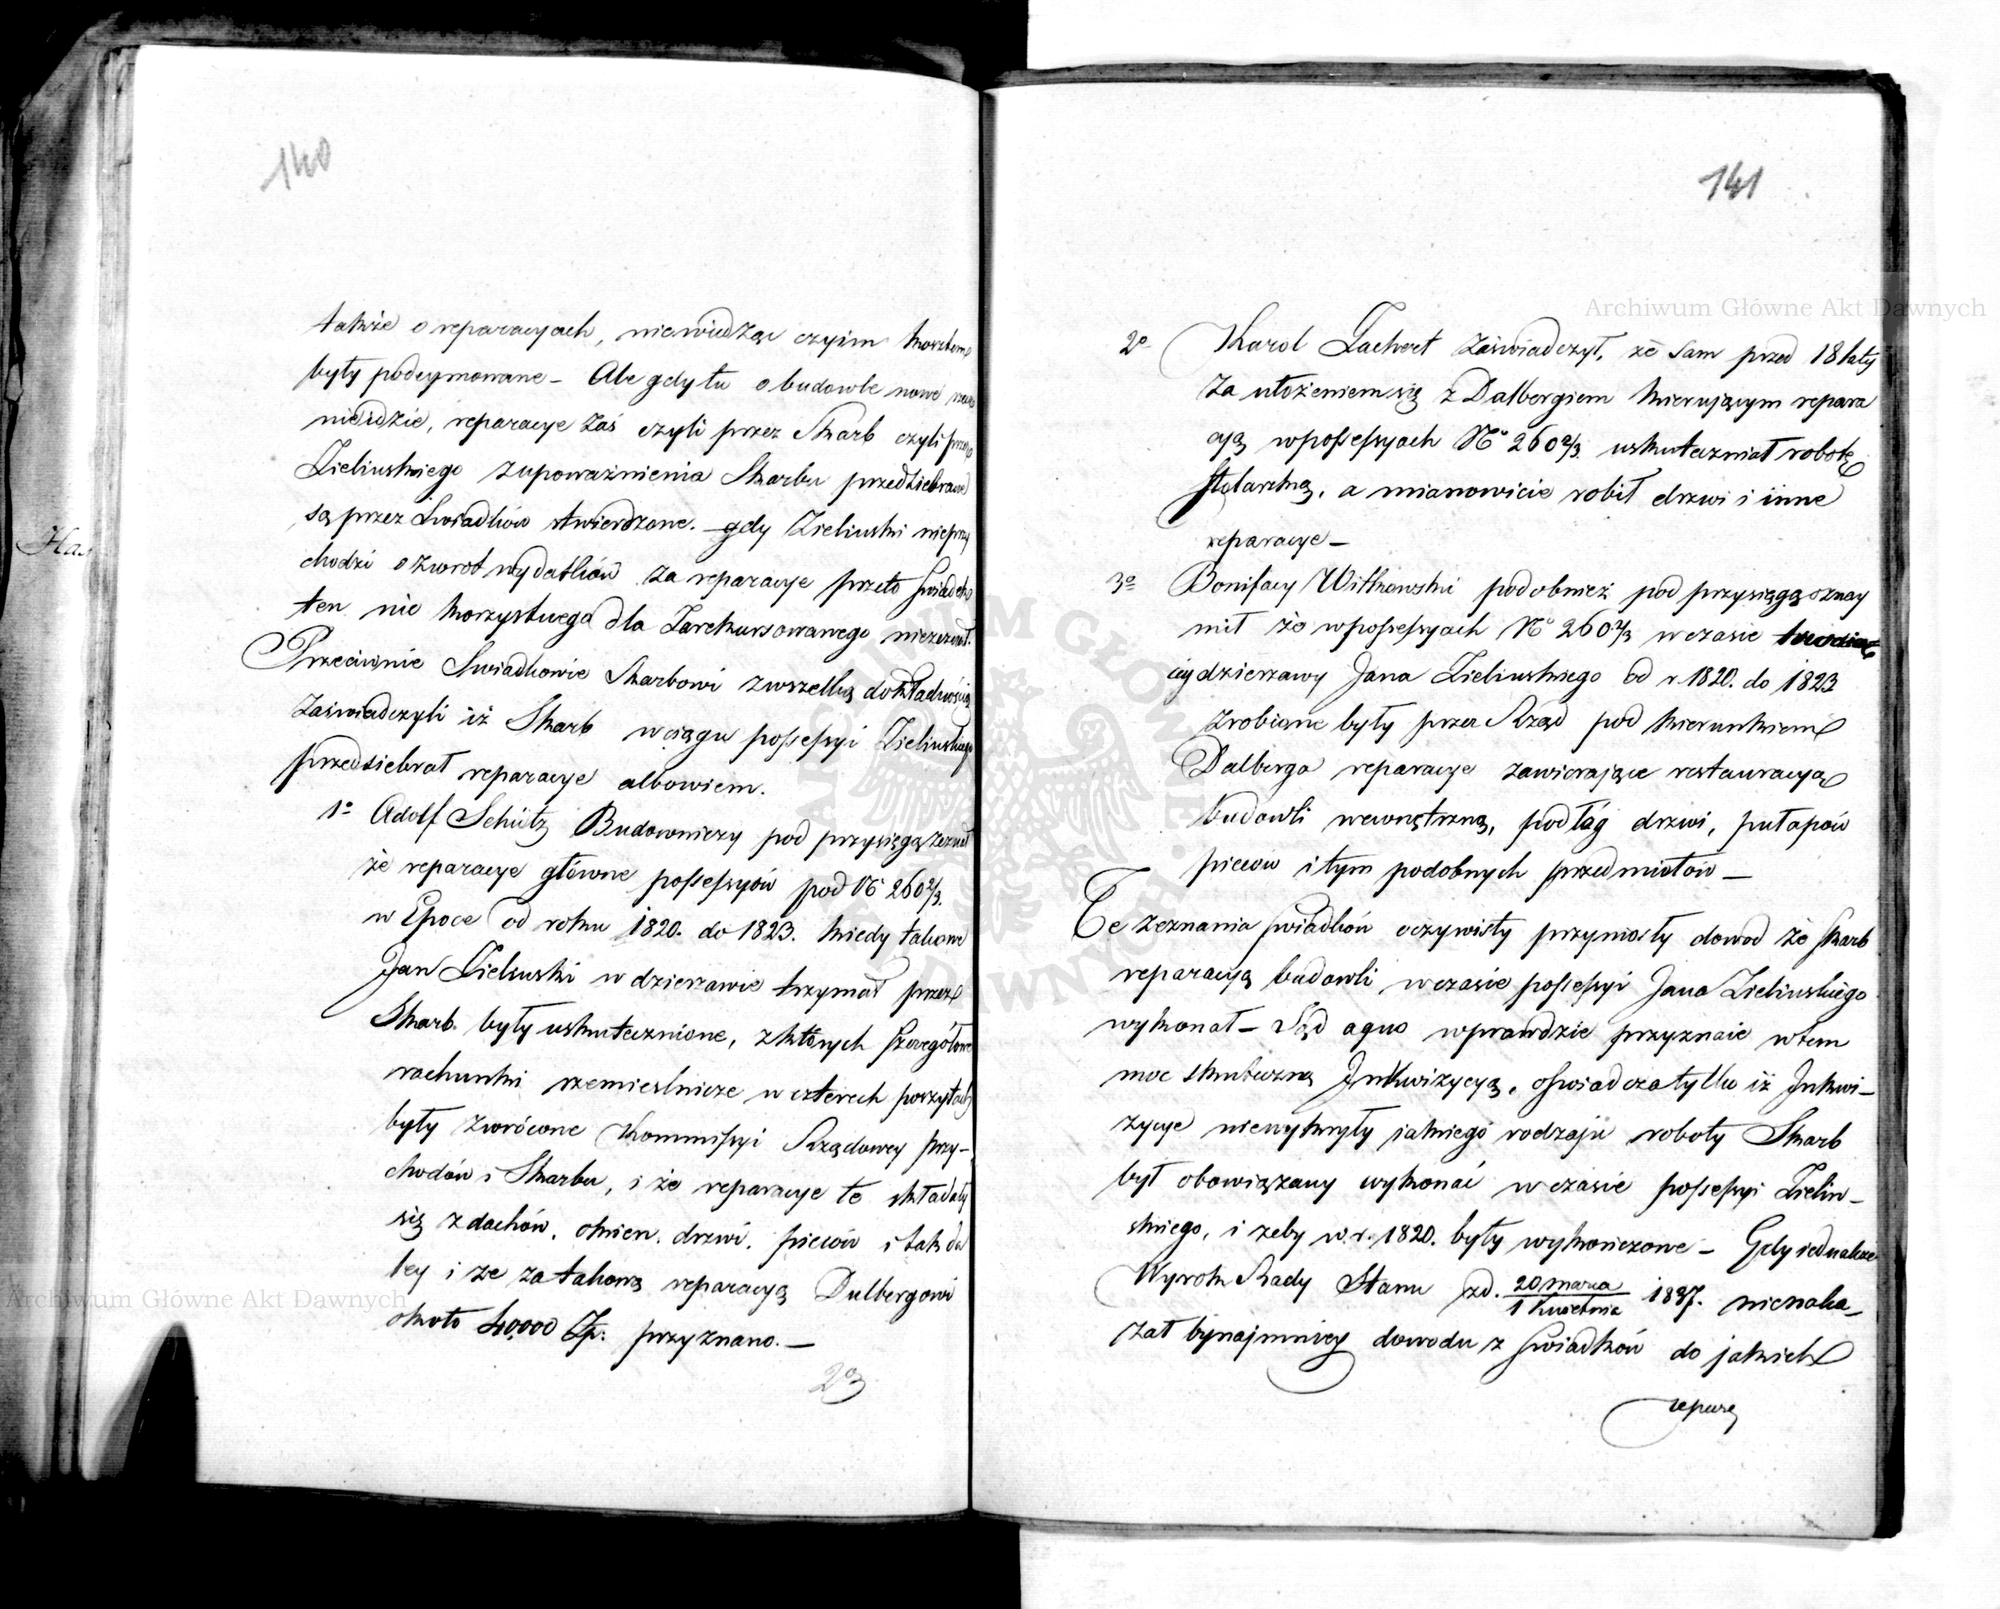 140
także o reparacyach, niewiedząc czyim kosztem
były podeymowane – Ale gdy tu o budowle nowe
nieidzie, reparacye zaś czyli przez Skarb czyli przez
Zielinskiego z upoważnienia Skarbu przedsiebrane
są przez Swiadków stwierdzone. – gdy Zielinski nieprzy
chodzi o zwrot wydatków za reparacye przeto Swiadek
ten nic korzystnego dla Zarekursowanego niezeznał.
Przeciwnie Swiadkowie Skarbowi z wszelką dokładnością
zaświadczyli iż Skarb w ciągu possessyi Zielinskiego
przedsiebrał reparacye albowiem.
1º Adolf Schütz Budowniczy pod przysięgą zeznał
że reparacye główne possessyów pod Nº 260 2/3.
w Epoce od roku 1820. do 1823. kiedy takowe
Jan Zielinski w dzierzawie trzymał przez
Skarb. były uskutecznione, z których szczegółowe
rachunki rzemieslnicze w czterech poszytach
były zwrócone Kommissyi Rządowey przy-
chodów i Skarbu, i że reparacye te składały
się z dachów, okien, drzwi, pieców i tak da
ley i ze za takową reparacyą Dalbergowi
około 40,000 Zp: przyznano. –
2º
141
2º Karol Lachert zaświadczył, że sam przed 18 laty
za ułożeniem się z Dalbergiem kierującym repara
cyą w possessyach Nº 260 2/3. uskuteczniał robotę
stolarską, a mianowicie robił drzwi i inne
reparacye –
3º Bonifacy Witkowski podobnież pod przysięgą oznay
mił że w possessyach Nº 260 2/3 w czasie
cey dzierzawy Jana Zielinskiego od r. 1820. do 1823
zrobione były przez Rząd pod kierunkiem
Dalberga reparacye zawierające restauracyą
budowli wewnętrzną, podłóg drzwi, pułapów
pieców i tym podobnych przedmiotów –
Te zeznania swiadków oczywisty przyniosły dowod że Skarb
reparacyą budowli w czasie possessyi Jana Zielinskiego
wykonał – Sąd a quo wprawdzie przyznaie w tem
moc skuteczną Inkwizycyą, oswiadcza tylko iż Inkwi-
zycye niewykryły jakiego rodzaju roboty Skarb
był obowiązany wykonać w czasie possessyi Zielin-
skiego, i zeby w r. 1820. były wykończone – Gdy iednakze
Wyrok Rady Stanu z d. 20 marca / 1 Kwietnia 1837. nienaka-
zał bynajmniey dowodu z Swiadków do jakich
repara
Ha
Archiwum Główne Akt Dawnych
Archiwum Główne Akt Dawnych
ARCHIWUM GŁÓWNE AKT DAWNYCH